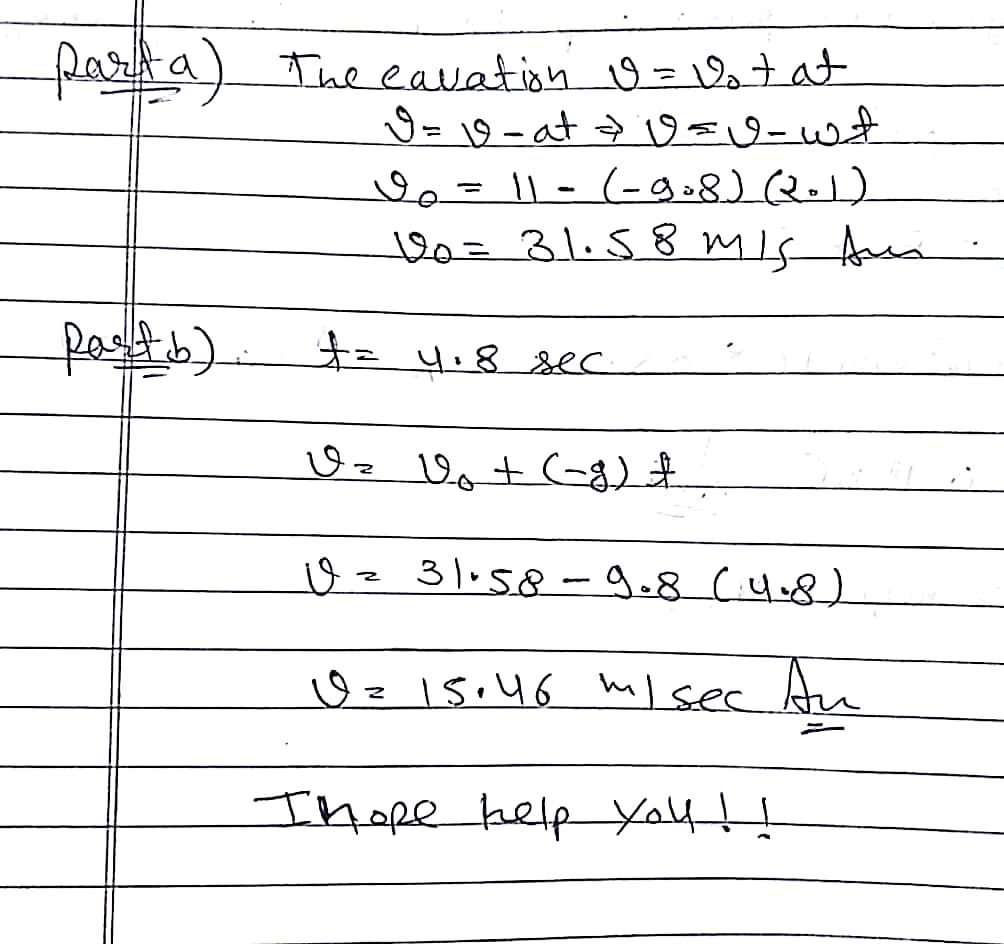 Part a) The eauation v = v₀ + at
v = v - at ⇒ v = v - wt
v₀ = 11 - (-9.8) (2.1)
v₀ = 31.58 m/s Ans
Part b) t = 4.8 sec
v = v₀ + (-g) t
v = 31.58 - 9.8 (4.8)
v = 15.46 m/sec An
I hope help you!!